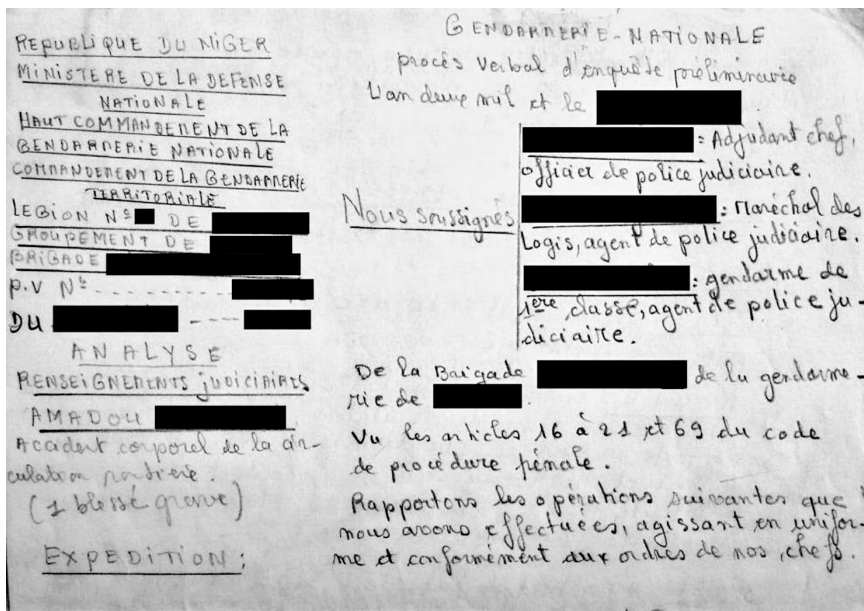 REPUBLIQUE DU NIGER
MINISTERE DE LA DEFENSE
NATIONALE
HAUT COMMANDEMENT DE LA
GENDARMERIE NATIONALE
COMMANDEMENT DE LA GENDARMERIE
TERRITORIALE
LEGION N° DE
GROUPEMENT DE
BRIGADE
P.V N°
DU
ANALYSE
RENSEIGNEMENTS judiciaires
AMADOU
Accident corporel de la cir-
culation routière.
(1 blessé grave)
EXPEDITION:
GENDARMERIE-NATIONALE
procès verbal d'enquête preliminaire
L'an deux mil et le
: Adjudant chef,
officier de police judiciaire.
Nous soussignés
: Maréchal des
Logis, agent de police judiciaire.
: gendarme de
1ère classe, agent de police ju-
diciaire.
De la Brigade de la gendarme-
rie de .
Vu les articles 16 à 21 et 69 du code
de procédure pénale.
Rapportons les opérations suivantes que
nous avons effectuées, agissant en unifor-
me et conformément aux ordres de nos chefs.